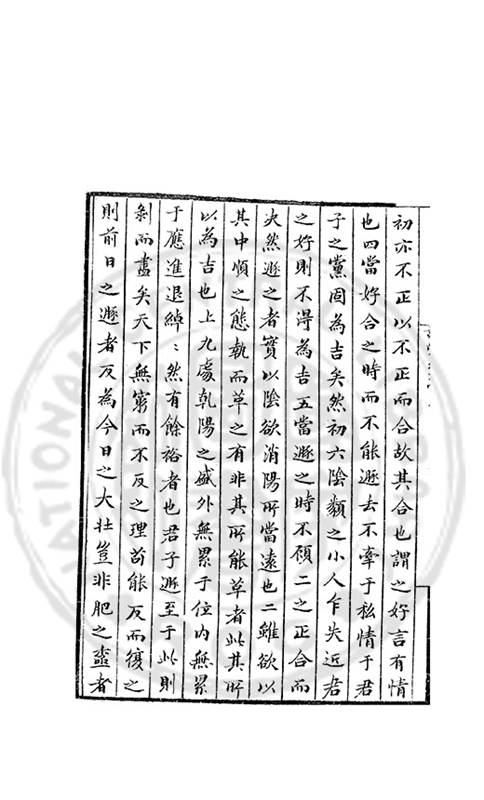 初亦不正以不正而合故其合也謂之好言有情
也四當好合之時而不能遯去不牽于私情于君
子之黨固為吉矣然初六陰類之小人乍失近君
之好則不得為吉五當遯之時不顧二之正合而
夬然遯之者實以陰欲消陽所當遠也二雖欲以
其中順之態執而革之有非其所能革者此其所
以為吉也上九處乾陽之盛外無累于位內無累
于應進退綽〻然有餘裕者也君子遯至于此則
剝而盡矣天下無窮而不反之理苟能反而復之
則前日之遯者反為今日之大壯豈非肥之盡者